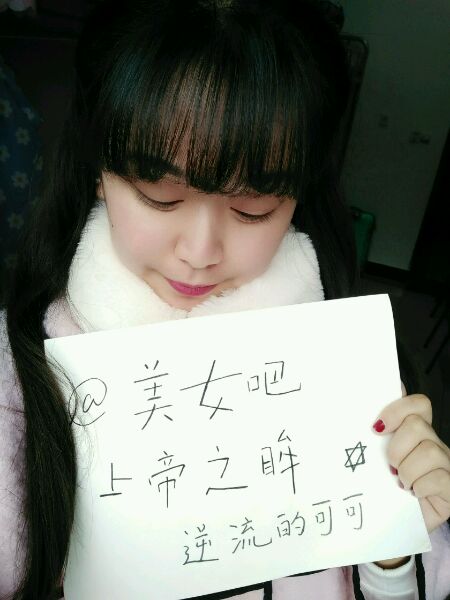 @美女吧
上帝之眸
逆流的可可